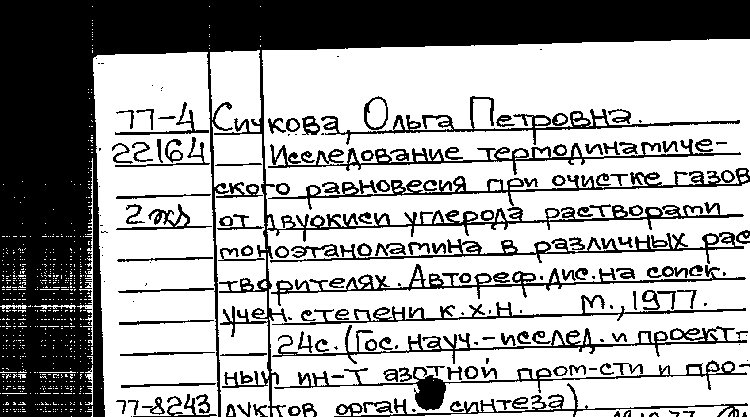 77-4 Сичкова, Ольга Петровна.
22164 Исследование термодинамиче-
ского равновесия при очистке газов
2 экз от двуокиси углерода растворами
моноэтаноламина в различных рас
творителях. Автореф. дис. на соиск.
учен. степени к.х.н. М., 1977.
24с. (Гос. науч.-исслед. и проект-
ный ин-т азотной пром-сти и про-
77-8243 дуктов орган. синтеза).